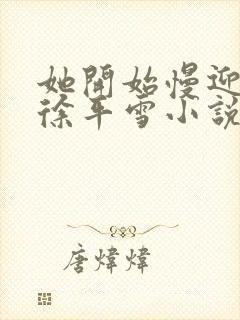 她開始慢迎
徐平雪小說
唐煒煒